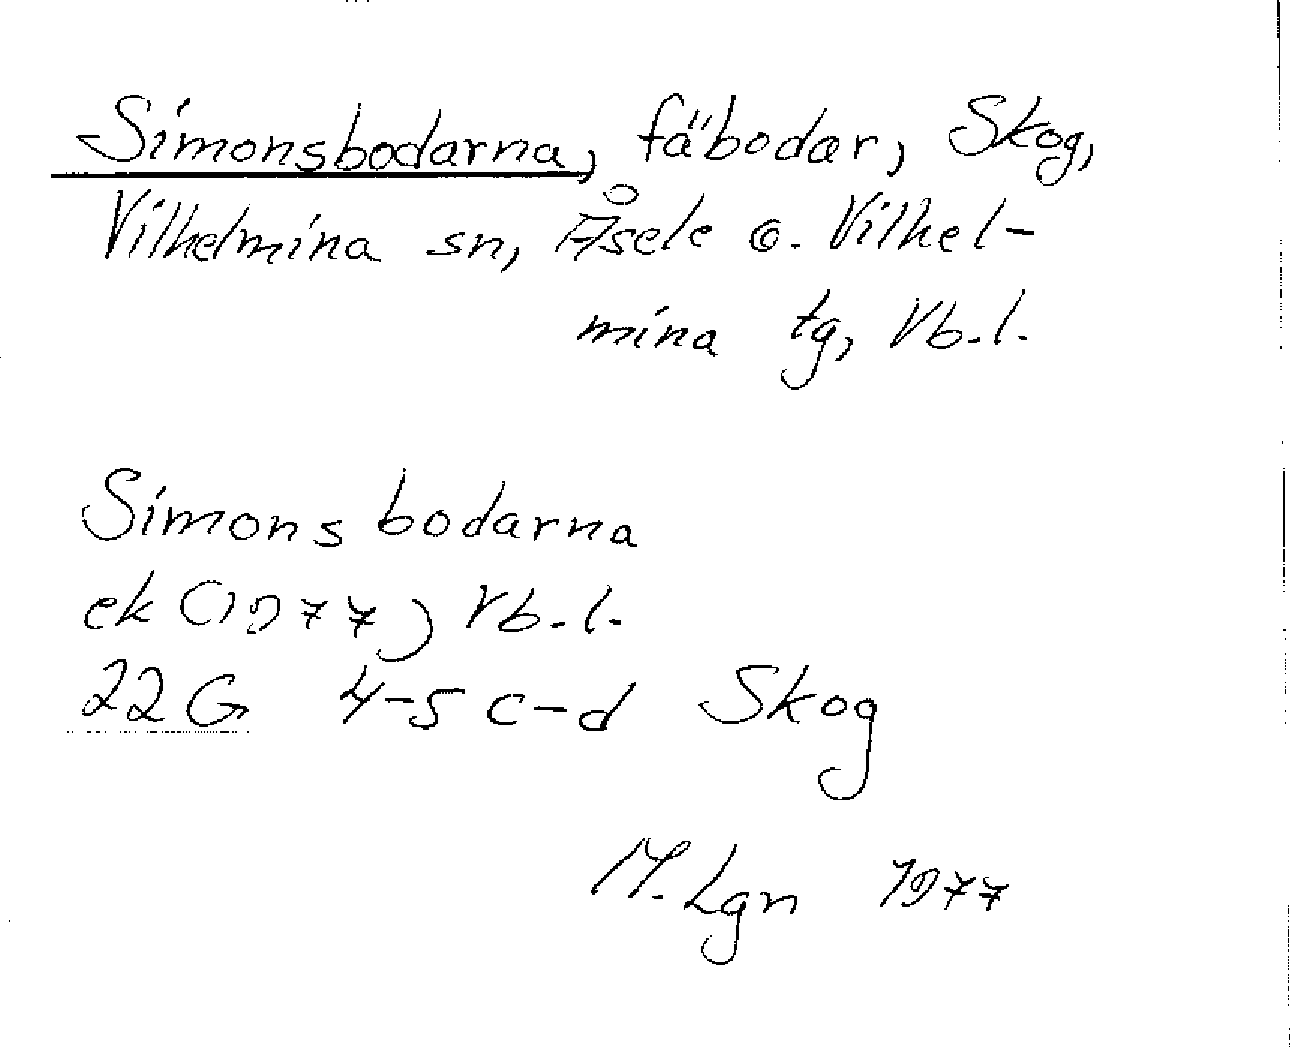 Simonsbodarna, fäbodar, Skog,
Vilhelmina sn, Åsele o. Vilhel-
mina tg, Vb.l.
Simonsbodarna
ek (1977) Vb.l.
22G 4-5 c-d Skog
M. Lgn 1977